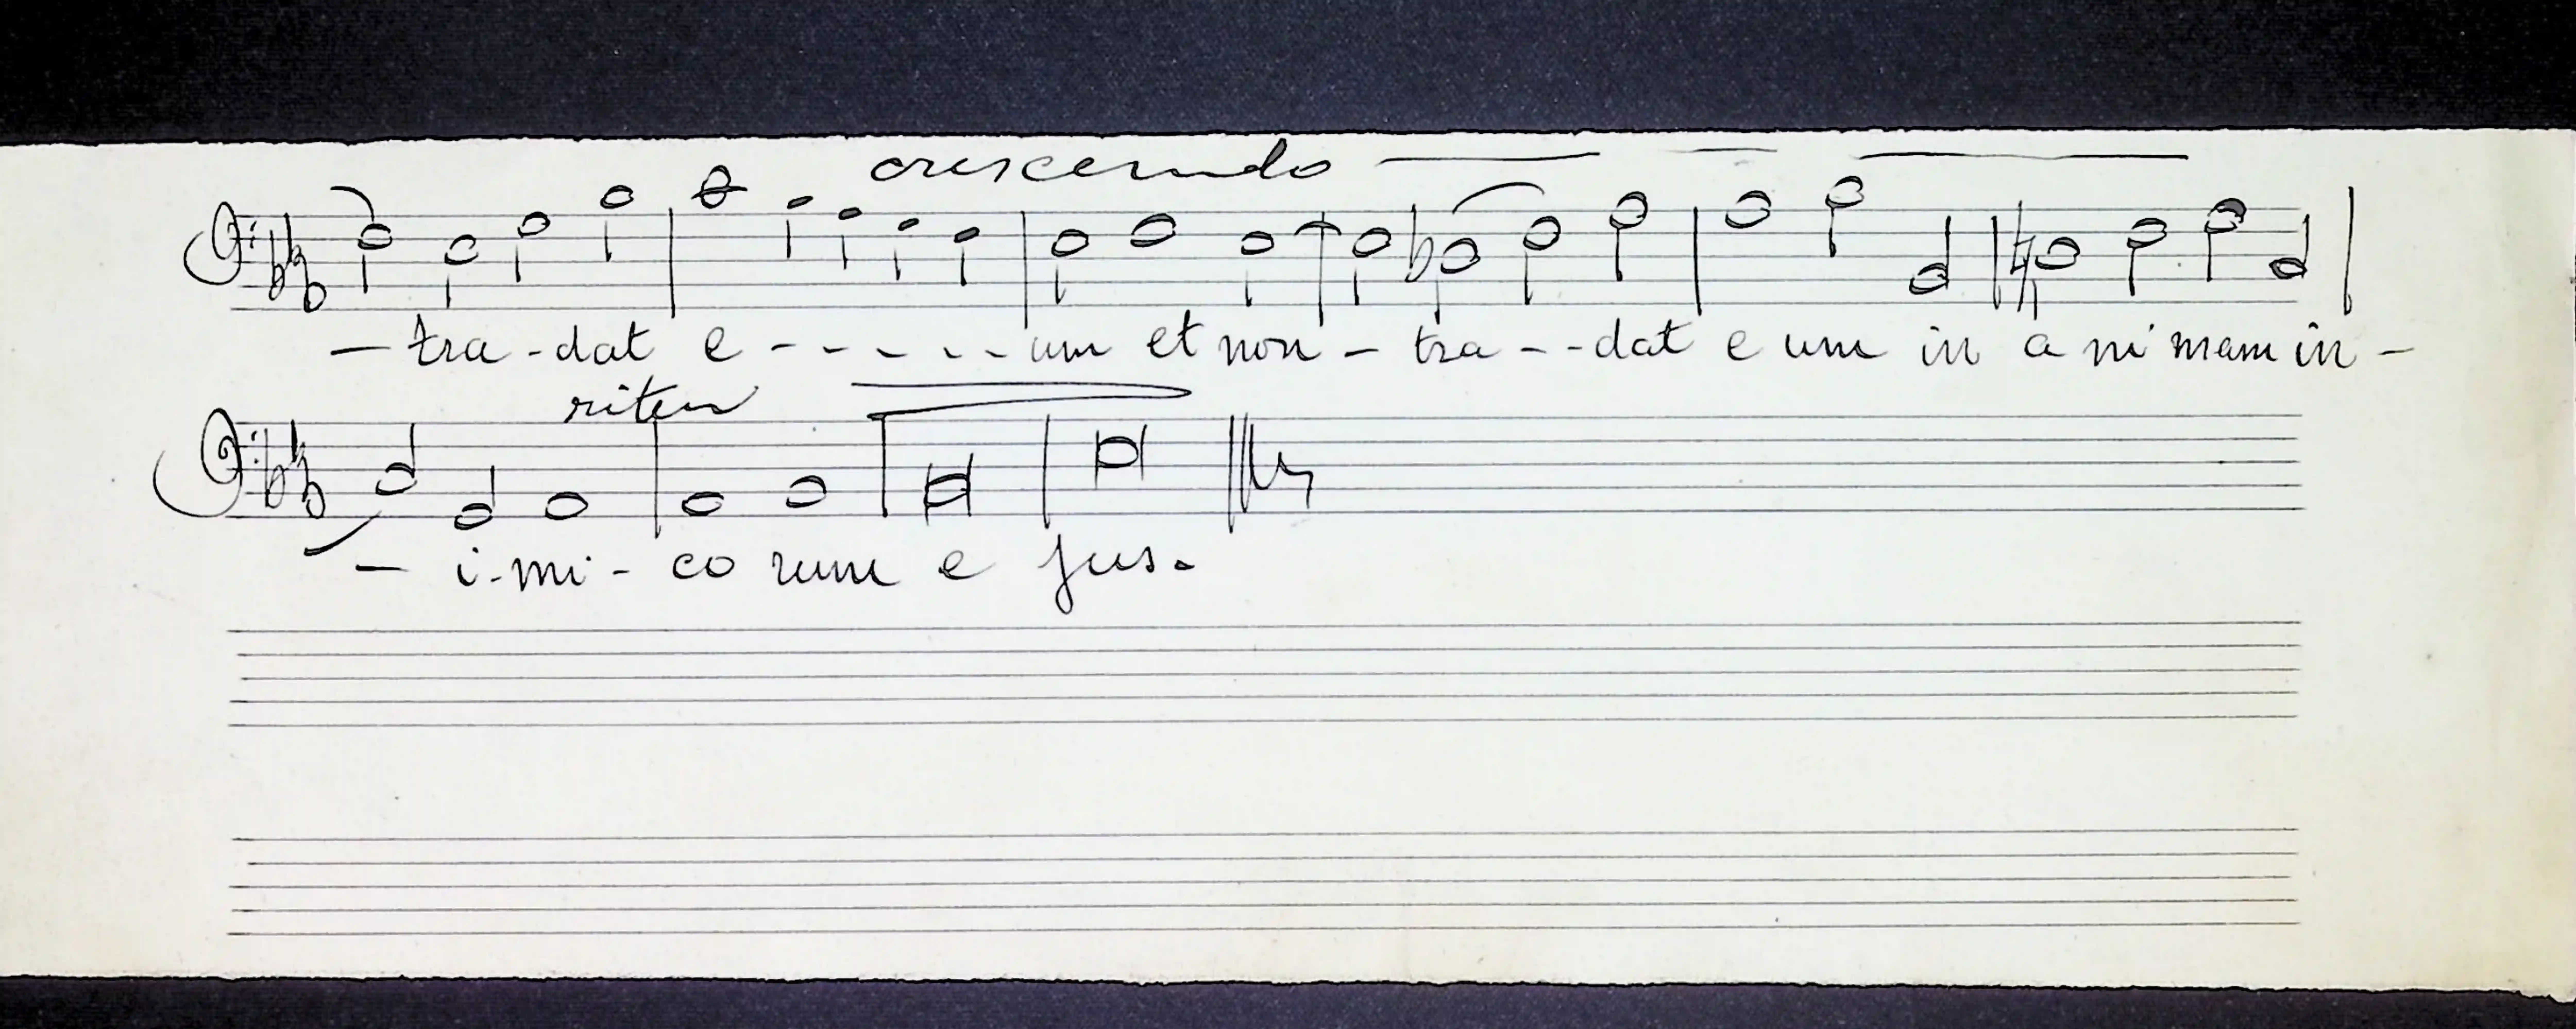 crescendo
— tra - dat e - - - - - - um et non - tra - - dat e um in a ni mam in -
riten
— i - mi - co rum e jus.